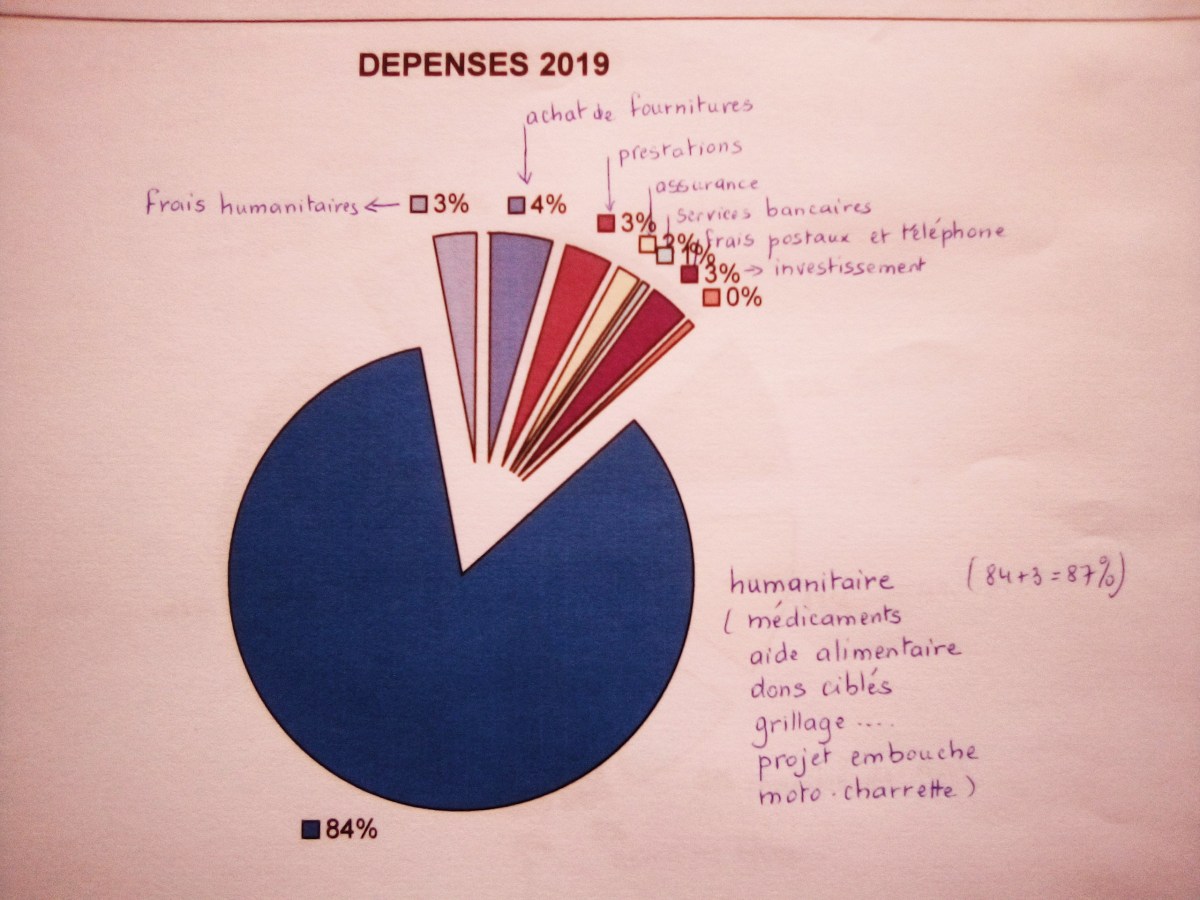 DEPENSES 2019
achat de fournitures
prestations
assurance
frais humanitaires ← 3%
4%
3%
services bancaires
2%
frais postaux et téléphone
1%
3% → investissement
0%
humanitaire (84+3=87%)
( médicaments
aide alimentaire
dons ciblés
grillage ....
projet embouche
moto-charrette )
84%